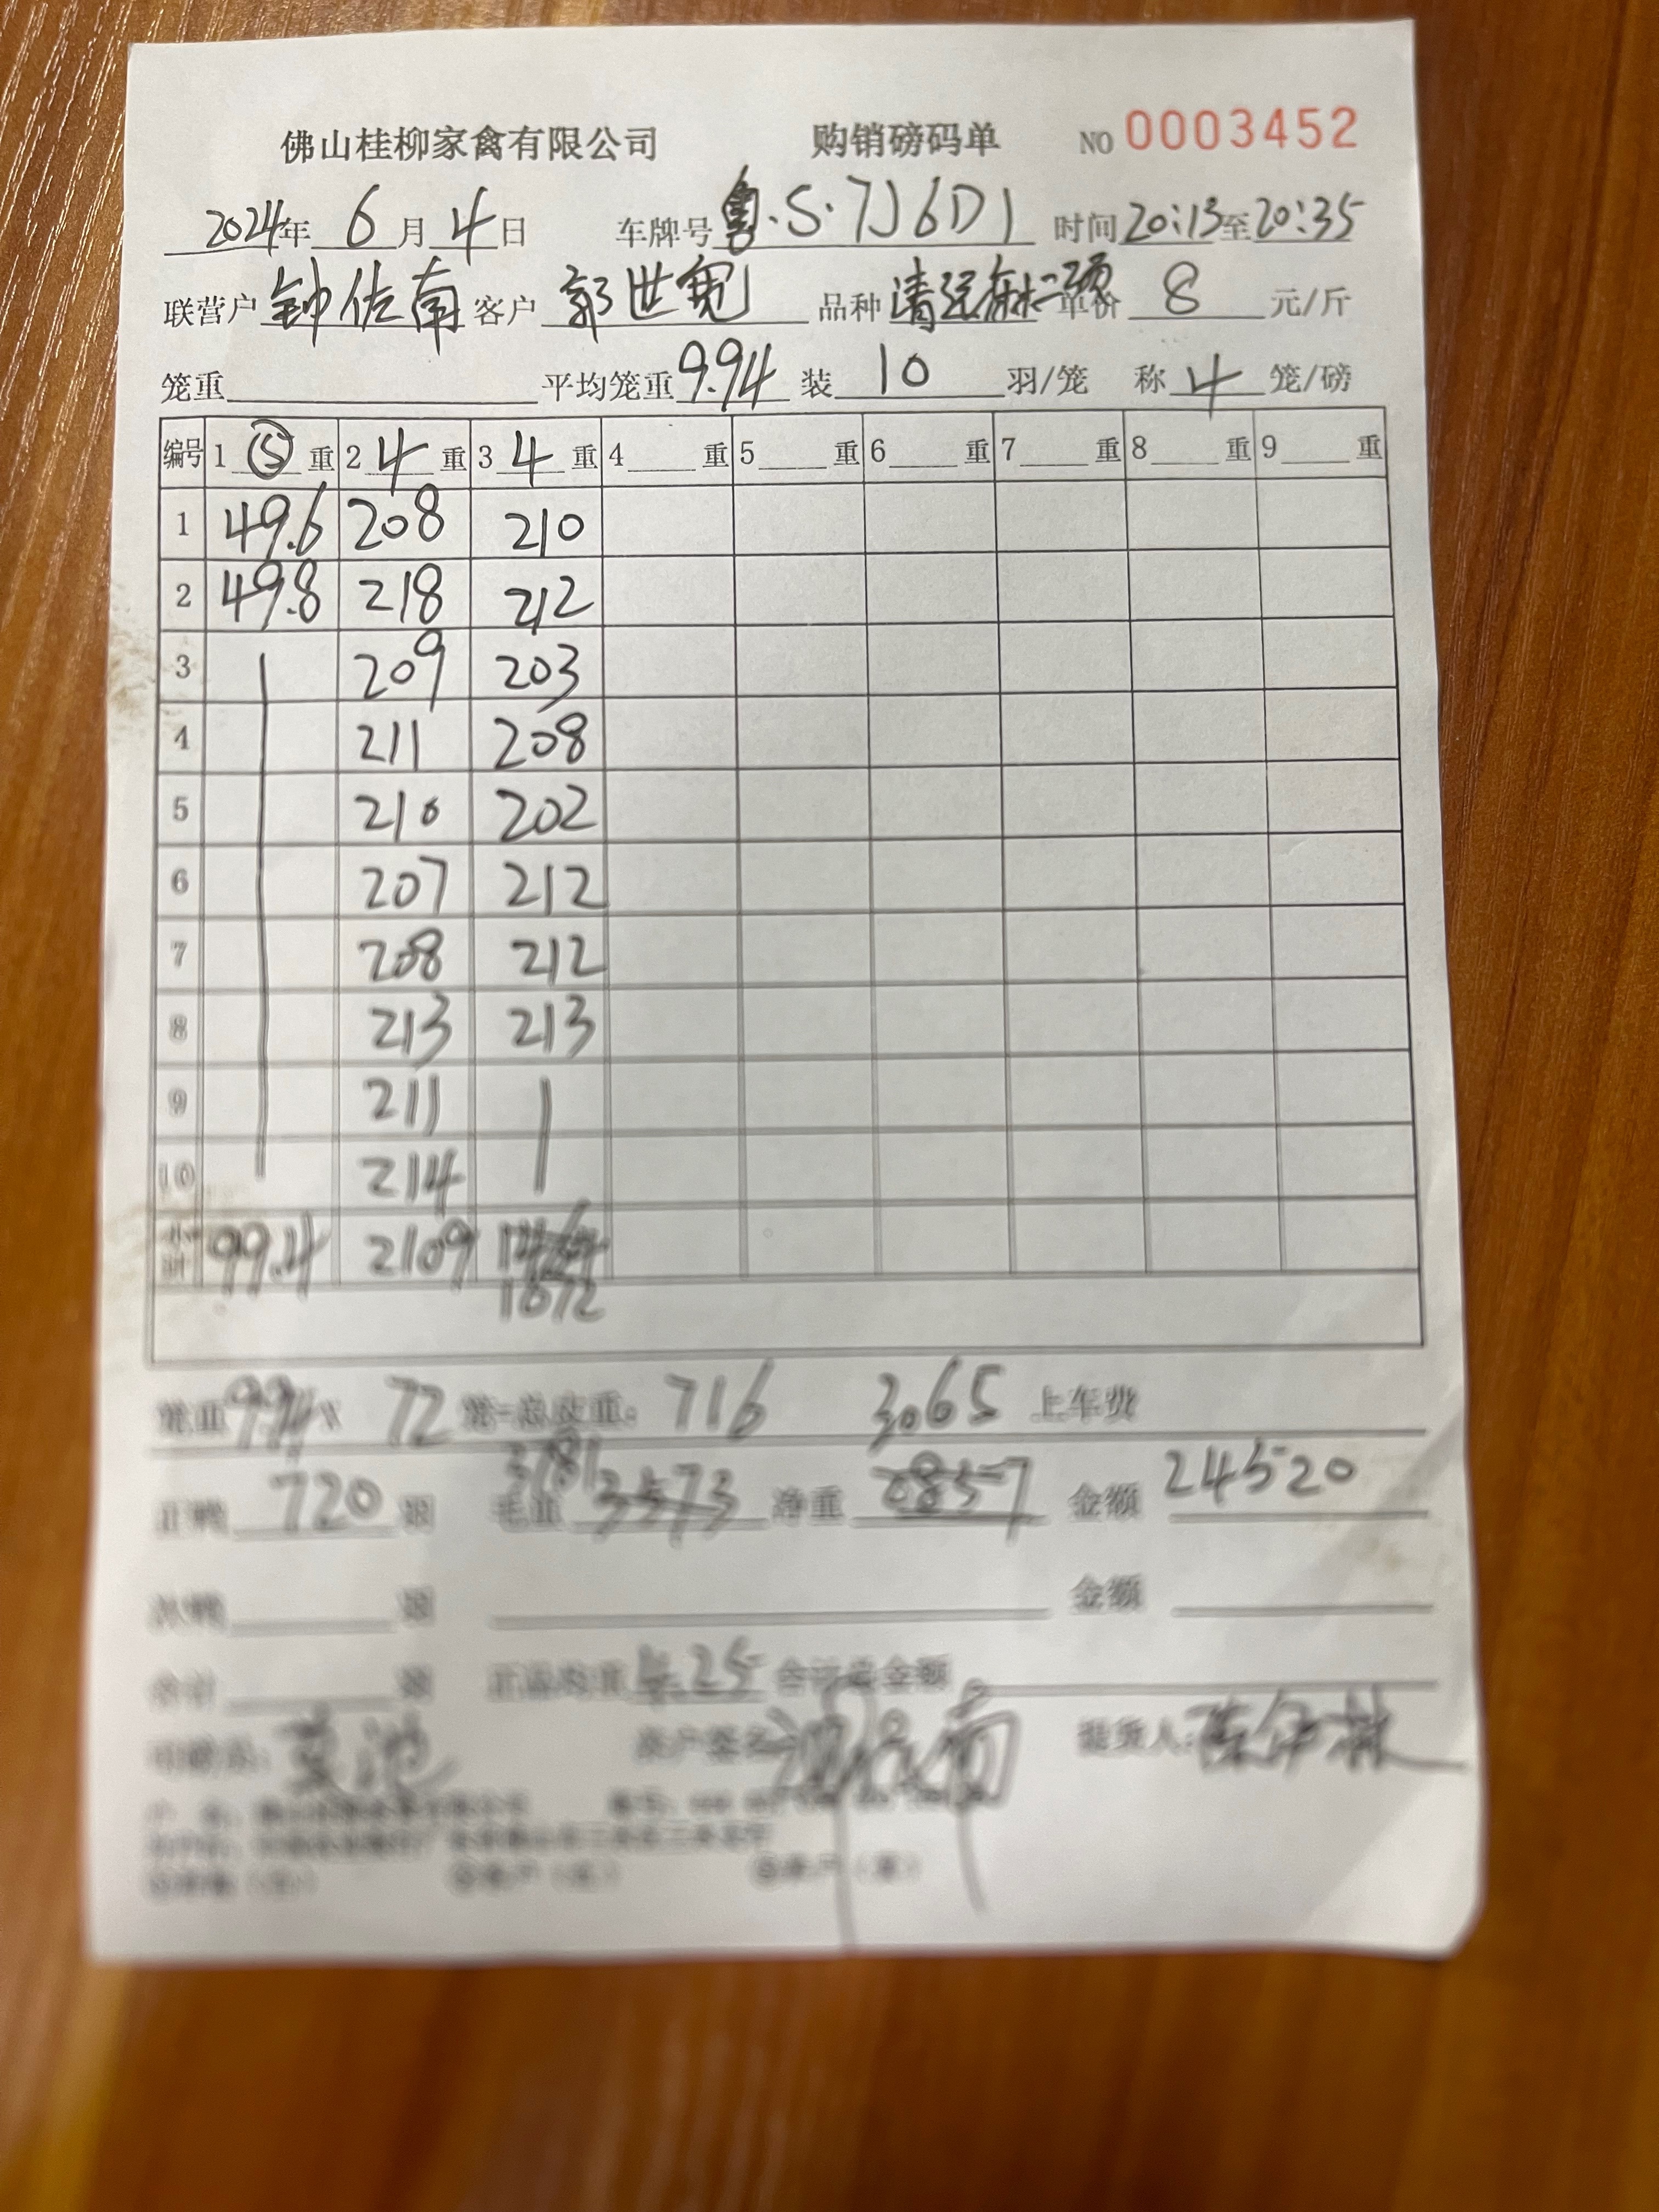 佛山桂柳家禽有限公司 购销磅码单 NO 0003452
2024年 6 月 4 日 车牌号 粤·S·7J6D1 时间 20:13至20:35
联营户 钟佐南 客户 郭世宽 品种 清远麻二项 单价 8 元/斤
笼重 平均笼重 9.94 装 10 羽/笼 称 4 笼/磅
编号 1 ⑤ 重 2 4 重 3 4 重 4 重 5 重 6 重 7 重 8 重 9 重
1 49.6 208 210
2 49.8 218 212
3 209 203
4 211 208
5 210 202
6 207 212
7 208 212
8 213 213
9 211
10 214
小计 99.4 2109
1672
笼重 9.94 X 72 笼=总皮重: 716 3065 上车费
3781
正鸭 720 羽 毛重 3573 净重 金额 24520
次鸭 羽 金额
合计 羽 正品均重 4.25 合计总金额
客户签名 提货人: